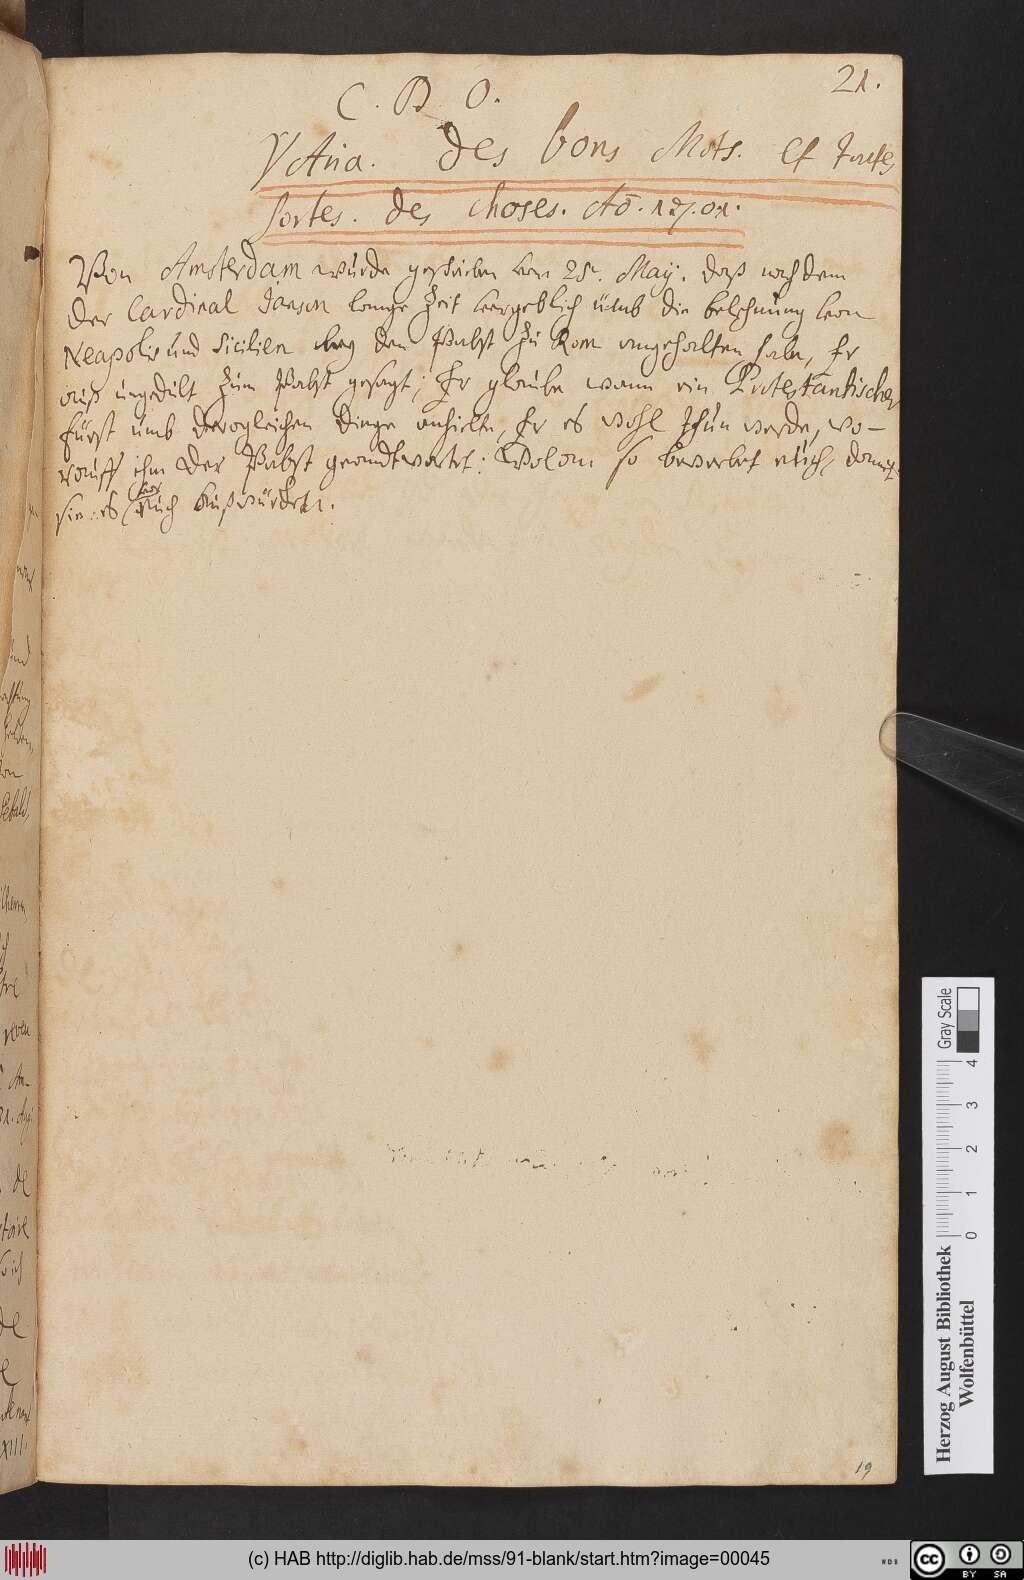 21.
C. B. O.
VAria. des bons Mots. et toutes
sortes. des choses. Aō. 1701.
Von Amsterdam wurde geschrieben vom 25. Maÿ. daß nach dem
der Cardinal Janson lange Zeit vergeblich ümb die belehnung von
Neapolis und Sicilien beÿ den Pabst zu Rom angehalten habe, Er
auß ungedult zum Pabst gesagt; Er glaube wann ein Protestantischer
Fürst umb dergleichen dinge anhielte, Er es wohl thun werde, wo-
rauff ihm der Pabst geandtwortet: Wolan so bewerbet euch, damit
sie es Euch
19
Gray Scale
0 1 2 3 4
Herzog August Bibliothek
Wolfenbüttel
(c) HAB http://diglib.hab.de/mss/91-blank/start.htm?image=00045
WDB
cc BY SA